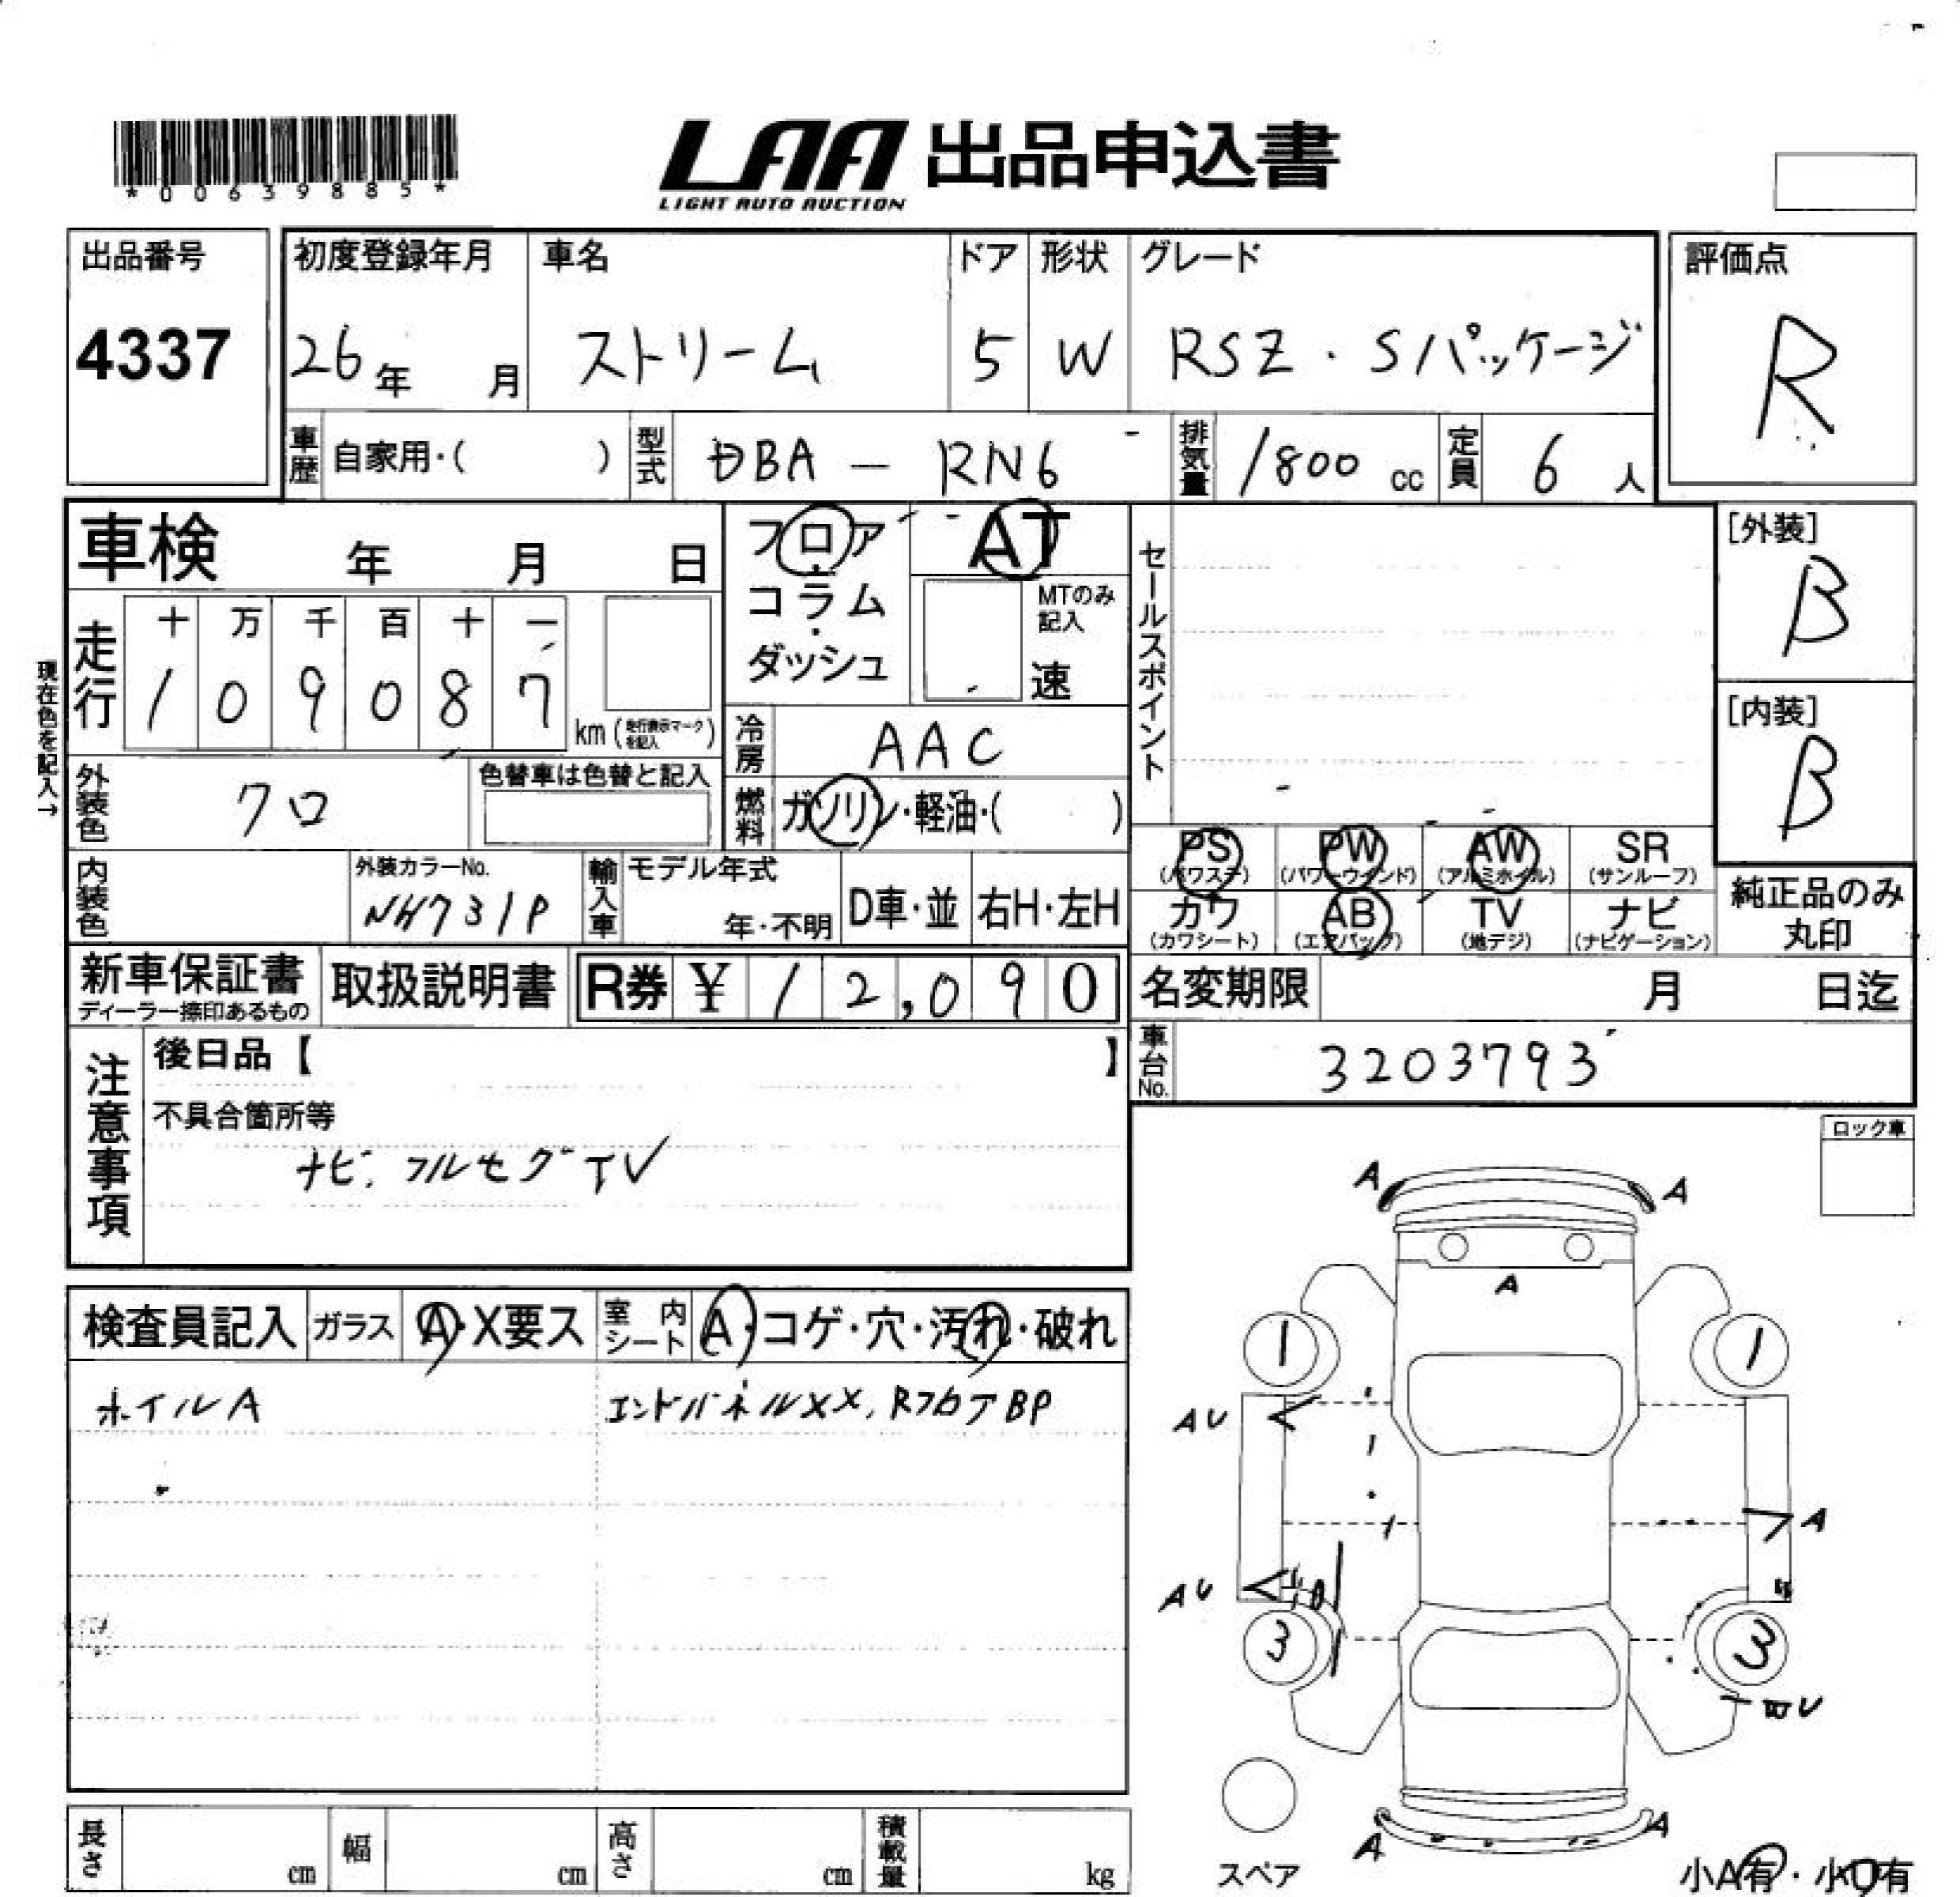 *00639885*
LAA 出品申込書
LIGHT AUTO AUCTION
出品番号 初度登録年月 車名 ドア 形状 グレード 評価点
4337 26年 月 ストリーム 5 W RSZ・Sパッケージ R
車歴 自家用・( ) 型式 DBA — RN6 排気量 1800 cc 定員 6 人
車検 年 月 日 フロア・コラム・ダッシュ AT セールスポイント [外装]
B
MTのみ記入
速
現在色を記入→
走行 十 万 千 百 十 一
1 0 9 0 8 7 km (走行表示マークを記入)
[内装]
B
冷房 AAC
外装色 クロ 色替車は色替と記入 燃料 ガソリン・軽油・( )
PS (パワステ) PW (パワーウインド) AW (アルミホイル) SR (サンルーフ)
カワ (カワシート) AB (エアバッグ) TV (地デジ) ナビ (ナビゲーション) 純正品のみ丸印
内装色 外装カラーNo. NH731P 輸入車 モデル年式 年・不明 D車・並 右H・左H
新車保証書 取扱説明書 R券 ¥ 12,090 名変期限 月 日迄
ディーラー捺印あるもの
車台No. 3203793
注意事項 後日品【 】
不具合箇所等
ナビ. フルセグTV
ロック車
検査員記入 ガラス A・X要ス 室内シート A・コゲ・穴・汚れ・破れ
ホイルA エンドパネルXX, RフロアBP
A A
A
1 1
AU
A
AU
3 3
U
A A
スペア 小A有・小U有
長さ cm 幅 cm 高さ cm 積載量 kg